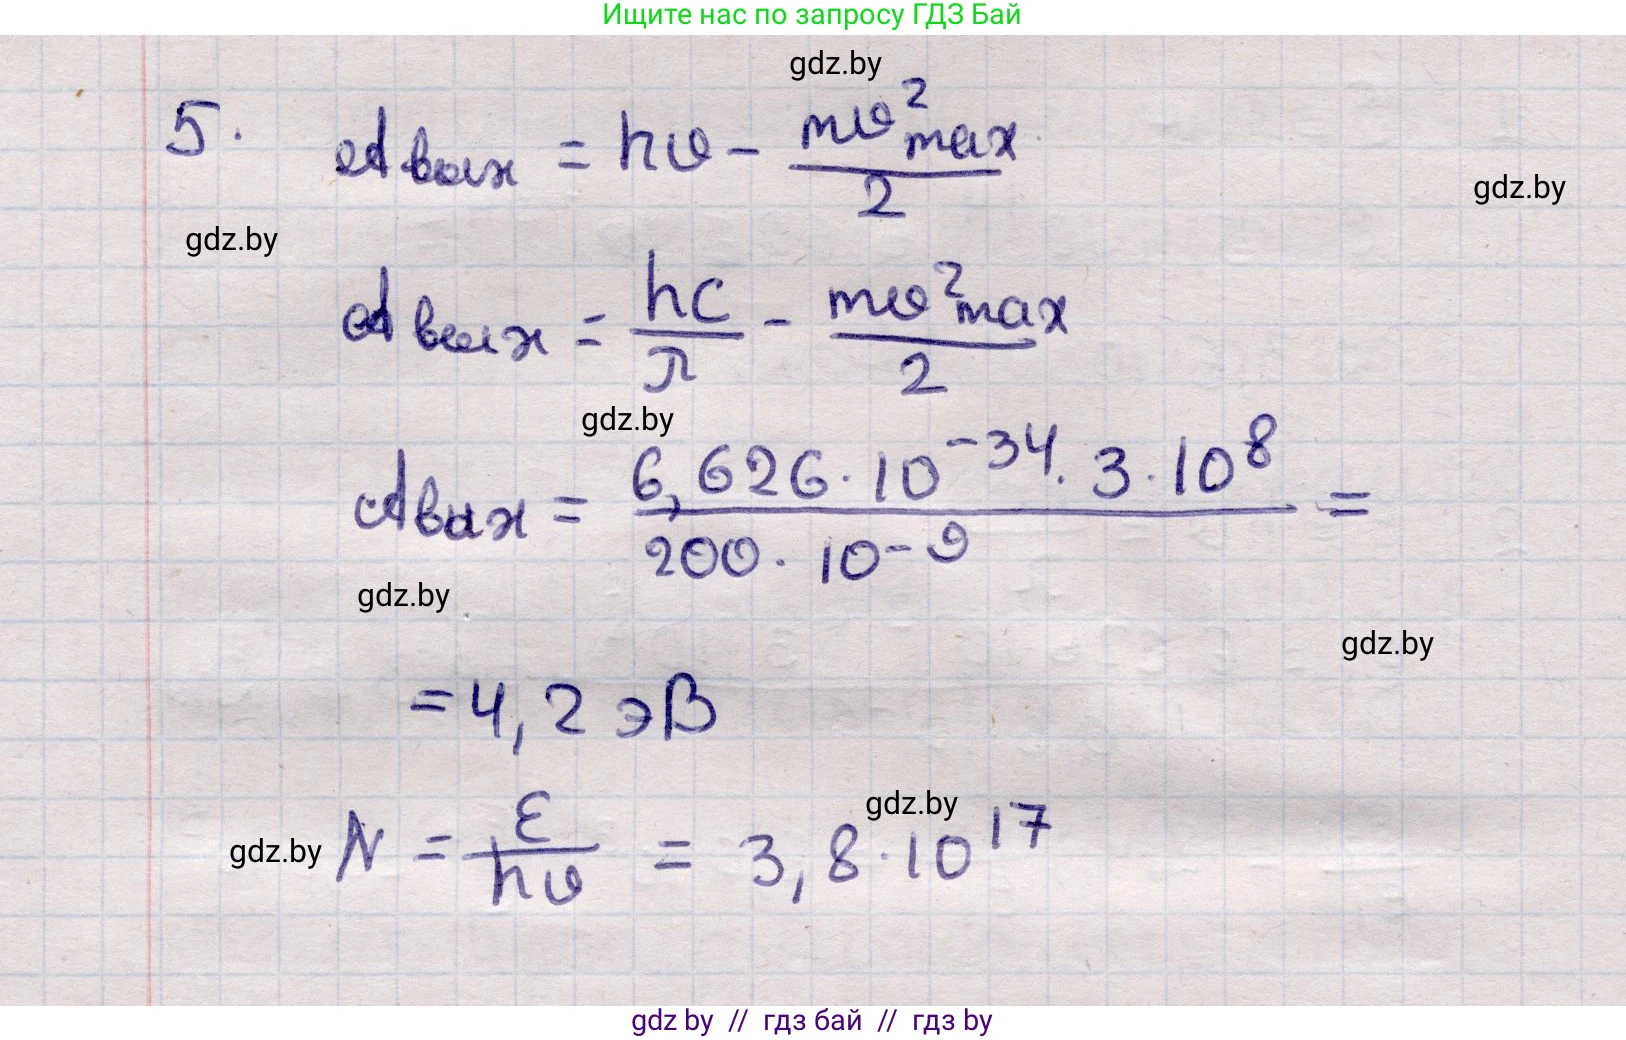 Ищите нас по запросу ГДЗ Бай
gdz.by
5. Aвых = hυ - mυ²max / 2
gdz.by
gdz.by
Aвых = hc / λ - mυ²max / 2
gdz.by
Aвых = 6,626 · 10⁻³⁴ · 3 · 10⁸ / 200 · 10⁻⁹ =
gdz.by
gdz.by
= 4,2 эВ
gdz.by
N = ε / hυ = 3,8 · 10¹⁷
gdz.by
gdz by // гдз бай // гдз by